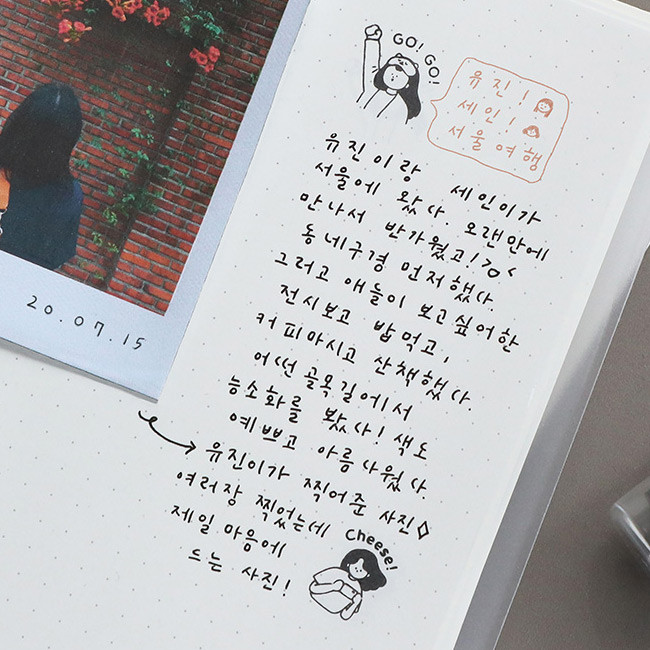 GO! GO!
유진!
세인!
서울여행
유진이랑 세인이가
서울에 왔다. 오랜만에
만나서 반가웠고!>o<
동네구경 먼저 했다.
그러고 애들이 보고싶어한
전시보고 밥먹고,
커피마시고 산책했다.
어떤 골목길에서
능소화를 봤다! 색도
예쁘고 아름다웠다.
유진이가 찍어준 사진◇
여러장 찍었는데
제일 마음에
드는 사진!
Cheese!
20.07.15